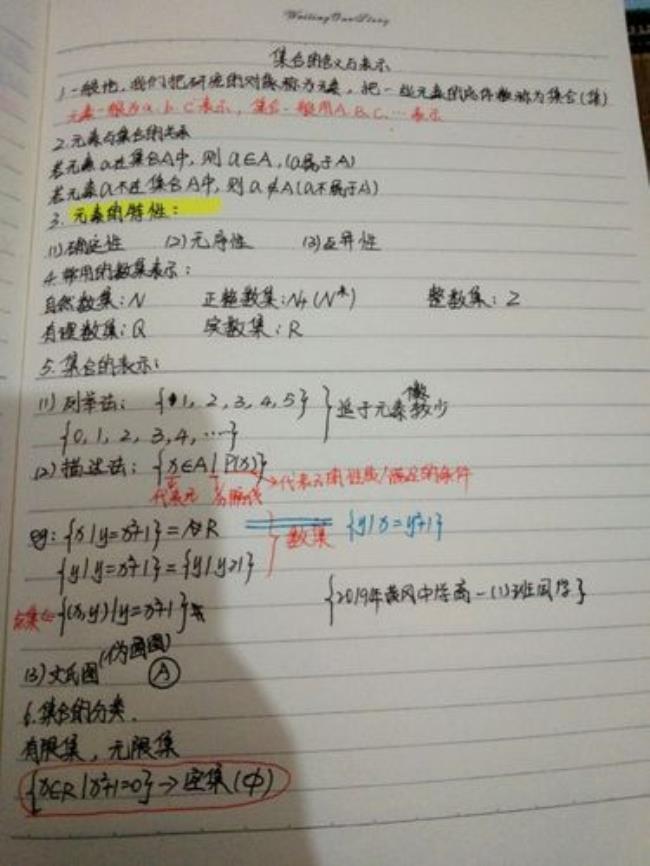 WritingOurStory
集合的含义与表示
1.一般地,我们把研究的对象称为元素,把一些元素的总体叫做称为集合(集)
元素一般为a、b、c表示,集合一般用A、B、C、…表示
2.元素与集合的关系
若元素a在集合A中,则a∈A,(a属于A)
若元素a不在集合A中,则a∉A(a不属于A)
3.元素的特性:
(1)确定性 (2)无序性 (3)互异性
4.常用的数集表示:
自然数集:N 正整数集:N+(N*) 整数集:Z
有理数集:Q 实数集:R
5.集合的表示:
(1)列举法:{1,2,3,4,5} }适于元素较少
{0,1,2,3,4,…}
(2)描述法:{x∈A|P(x)}
代表元 分隔线 →代表元的性质/满足的条件
eg:{x|y=x²+1}=R }数集 {y|x=y²+1}
{y|y=x²+1}={y|y≥1}
点集⇐{(x,y)|y=x²+1} {2019年黄冈中学高一(1)班同学}
(3)文氏图(伪画图) A
6.集合的分类.
有限集,无限集
{x∈R|x²+1=0}→空集(Φ)